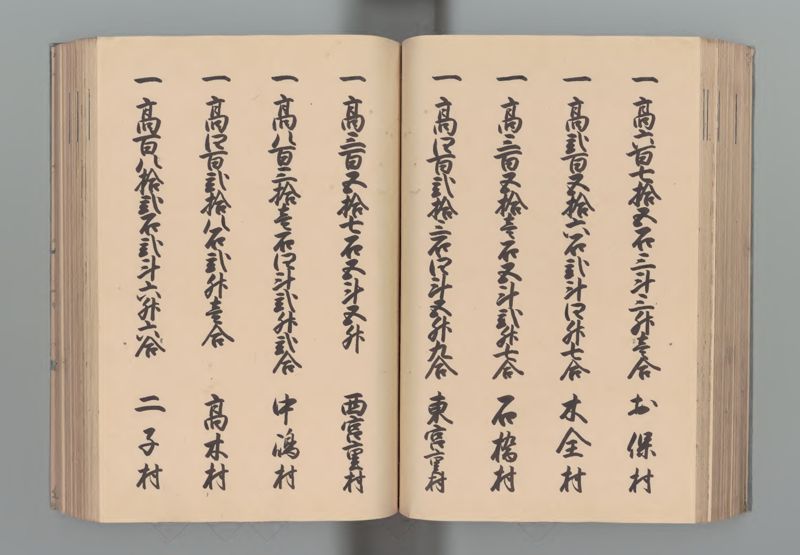 一 高六百七拾五石三斗三升壱合 お保村
一 高弐百五拾六石弐斗四升七合 木全村
一 高三百五拾壱石五斗弐升七合 石橋村
一 高四百弐拾三石四斗五升九合 東宮重村
一 高三百五拾七石五斗五升 西宮重村
一 高八百三拾壱石四斗弐升弐合 中嶋村
一 高四百弐拾八石弐升壱合 高木村
一 高百八拾弐石弐斗六升六合 二子村